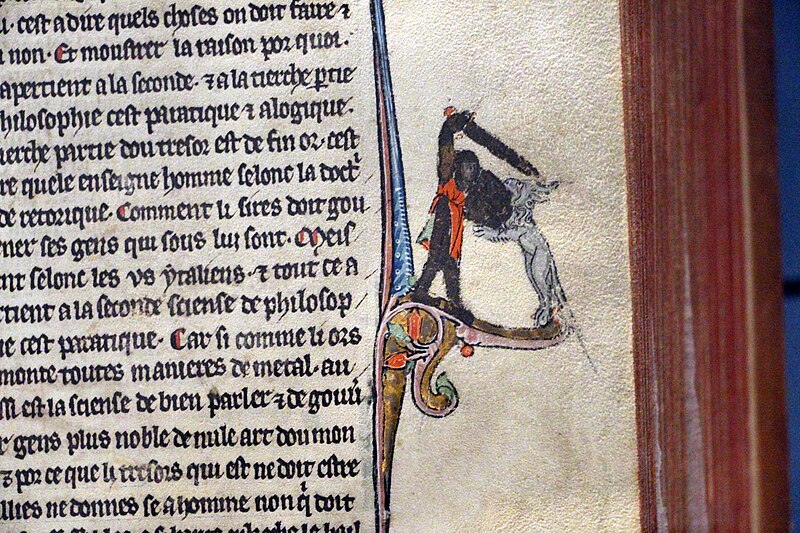 cest adire quels choses on doit faire ⁊
non. Et monstrer la raison por quoi.
apertient a la seconde. ⁊ a la tierche ptie
hilosophie cest paratique ⁊ alogique.
ierche partie dou tresor est de fin or. cest
re quele enseigne homme selonc la doctr
de retorique. Comment li sires doit gou
ner ses gens qui sous lui sont. Meis
nt selonc les us ytaliens. ⁊ tout ce a
rtient a la seconde sciense de philosop
ie cest paratique. Car si comme li ors
monte toutes manieres de metal. au
si est la sciense de bien parler ⁊ de gouu
r gens plus noble de nule art dou mon
⁊ por ce que li tresors qui est ne doit estre
llies ne donnes se a homme non q̇ doit